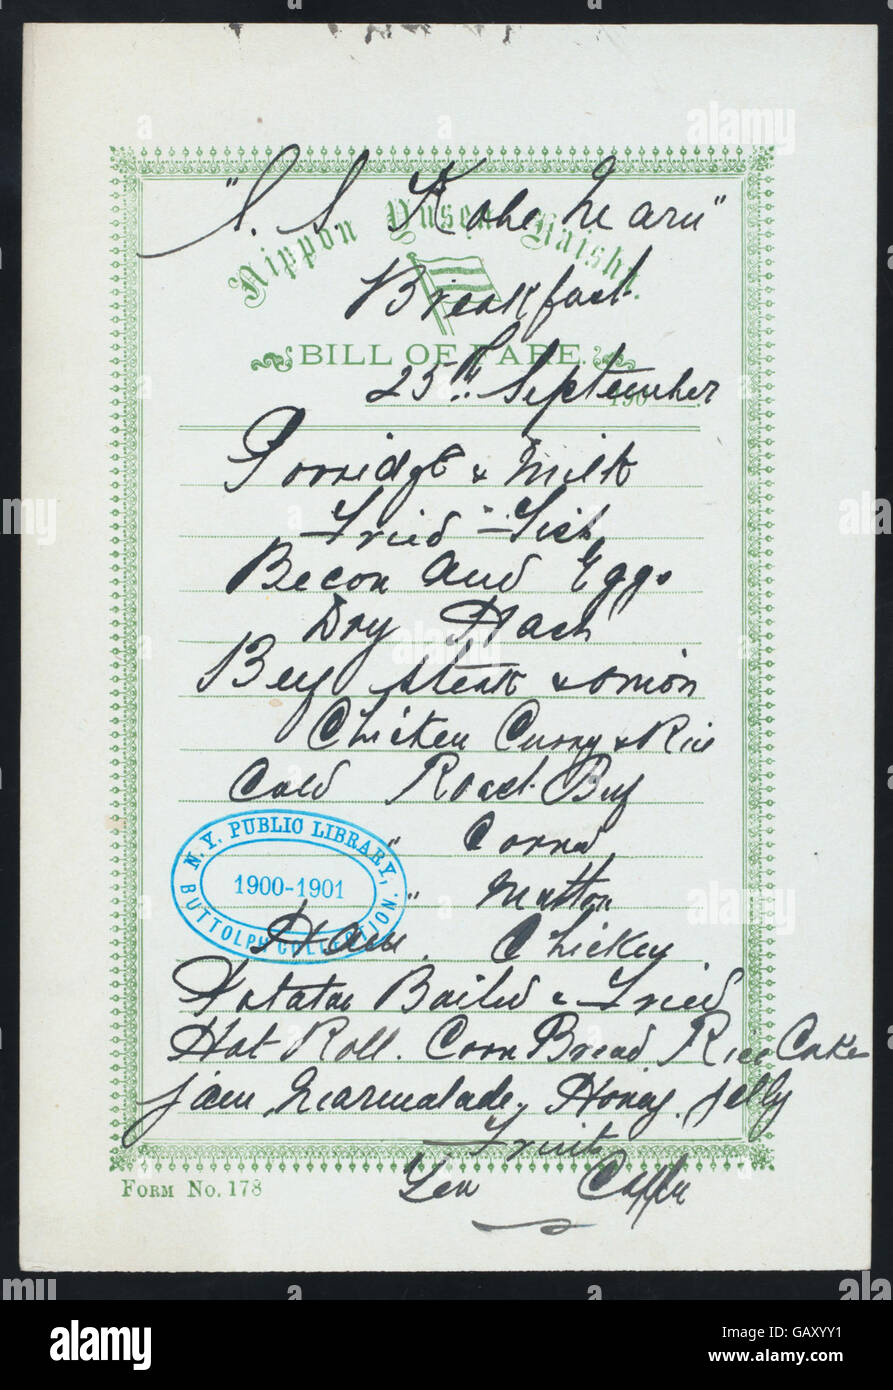 "S. S. Kobe Maru"
Nippon Yusen Kaisha.
Breakfast
BILL OF FARE.
25th September
190
Porridge & Milk
Fried Fish
Becon and Eggs
Dry Hash
Beef steak & onion
Chicken Curry & Rice
Cold Roast Beef
" Corned
" Mutton
Ham. Chicken
Potatoe Boiled & Fried
Hot Roll. Corn Bread Rice Cake
Jam, Marmalade, Honey. Jelly
Fruits
Tea Coffee
N.Y. PUBLIC LIBRARY,
1900-1901
BUTTOLPH COLLECTION.
FORM No. 178
alamy
Image ID: GAXYY1
www.alamy.com